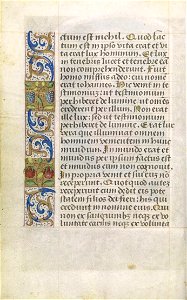 ctum est nichil. Quod fac
tum est in ipso vita erat et vi
ta erat lux hominum. Et lux
in tenebris lucet et tenebre eā
non comprehenderunt. Fuit
homo missus a deo: cui nomē
erat iohannes. Hic venit in te
stimonium ut testimonium
perhiberet de lumine ut omēs
crederent per illum. Non erat
ille lux: sed ut testimonium
perhiberet de lumine. Erat lux
vera que illuminat omnem
hominem venientem in hunc
mundum. In mundo erat et
mundus per ipsum factus est
et mundus eum non cognovit.
In propria venit et sui eum nō
receperunt. Quot quot autez
receperunt eum dedit eis pote
statem filios dei fieri: his qui
credunt in nomine eius. Qui
non ex sanguinibus neqz ex vo
luntate carnis neqz ex volunta